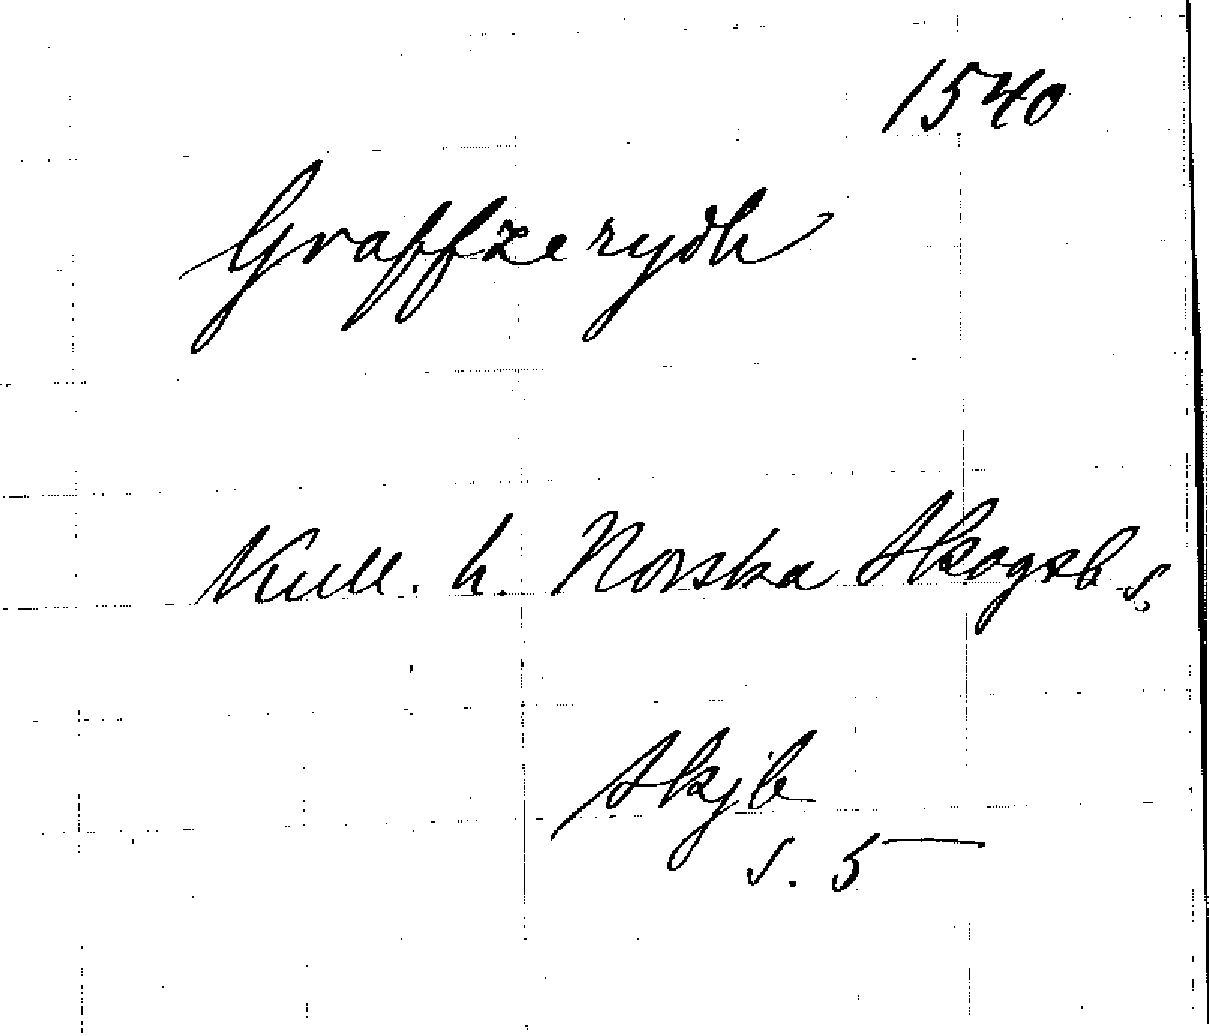 1540
Graffzerydh
Kull. h. Norska Skogsb s.
Skjb
s. 5